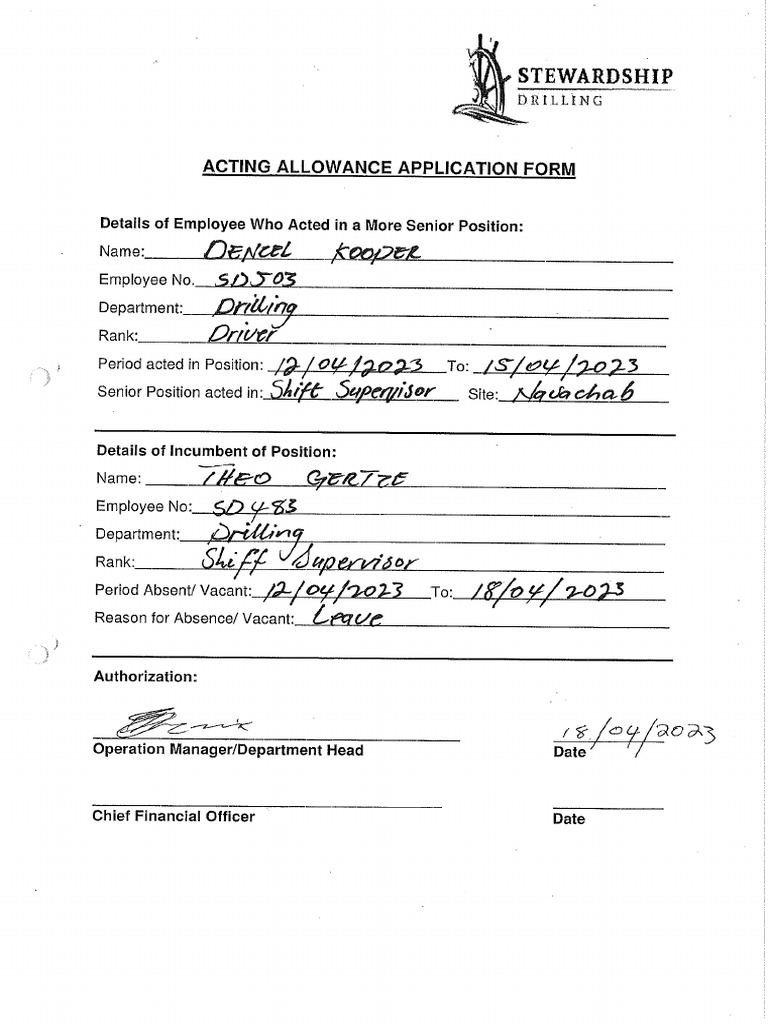 STEWARDSHIP
DRILLING
ACTING ALLOWANCE APPLICATION FORM
Details of Employee Who Acted in a More Senior Position:
Name: DENCEL KOOPER
Employee No. SD503
Department: Drilling
Rank: Driver
Period acted in Position: 12/04/2023 To: 15/04/2023
Senior Position acted in: Shift Supervisor Site: Navachab
Details of Incumbent of Position:
Name: THEO GERTZE
Employee No: SD483
Department: Drilling
Rank: Shiff Supervisor
Period Absent/ Vacant: 12/04/2023 To: 18/04/2023
Reason for Absence/ Vacant: Leave
Authorization:
18/04/2023
Operation Manager/Department Head Date
Chief Financial Officer Date